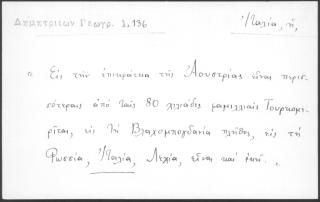 Δημητριεων Γεωγρ. 1,136
Ἰταλία, ἡ,
"Εἰς τὴν ἐπικράτεια τῆς Ἀουστρίας εἶναι περισ-
σότεραις ἀπὸ ταῖς 80 χιλιάδες φαμελλιαῖς Τουρκομε-
ρίταις, εἰς τὴ Βλαχομπογδανία πλῆθος, εἰς τὴ
Ρωσσία, Ἰταλία, Λεχία, εἶναι καὶ ἐκεῖ."